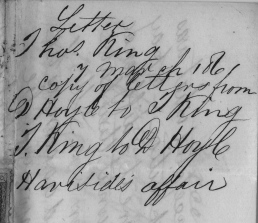 Letter
Thos. King
7 March 186
copy of letters from
D Hoyle to T King
T. King to D Hoyle
Havisides affair